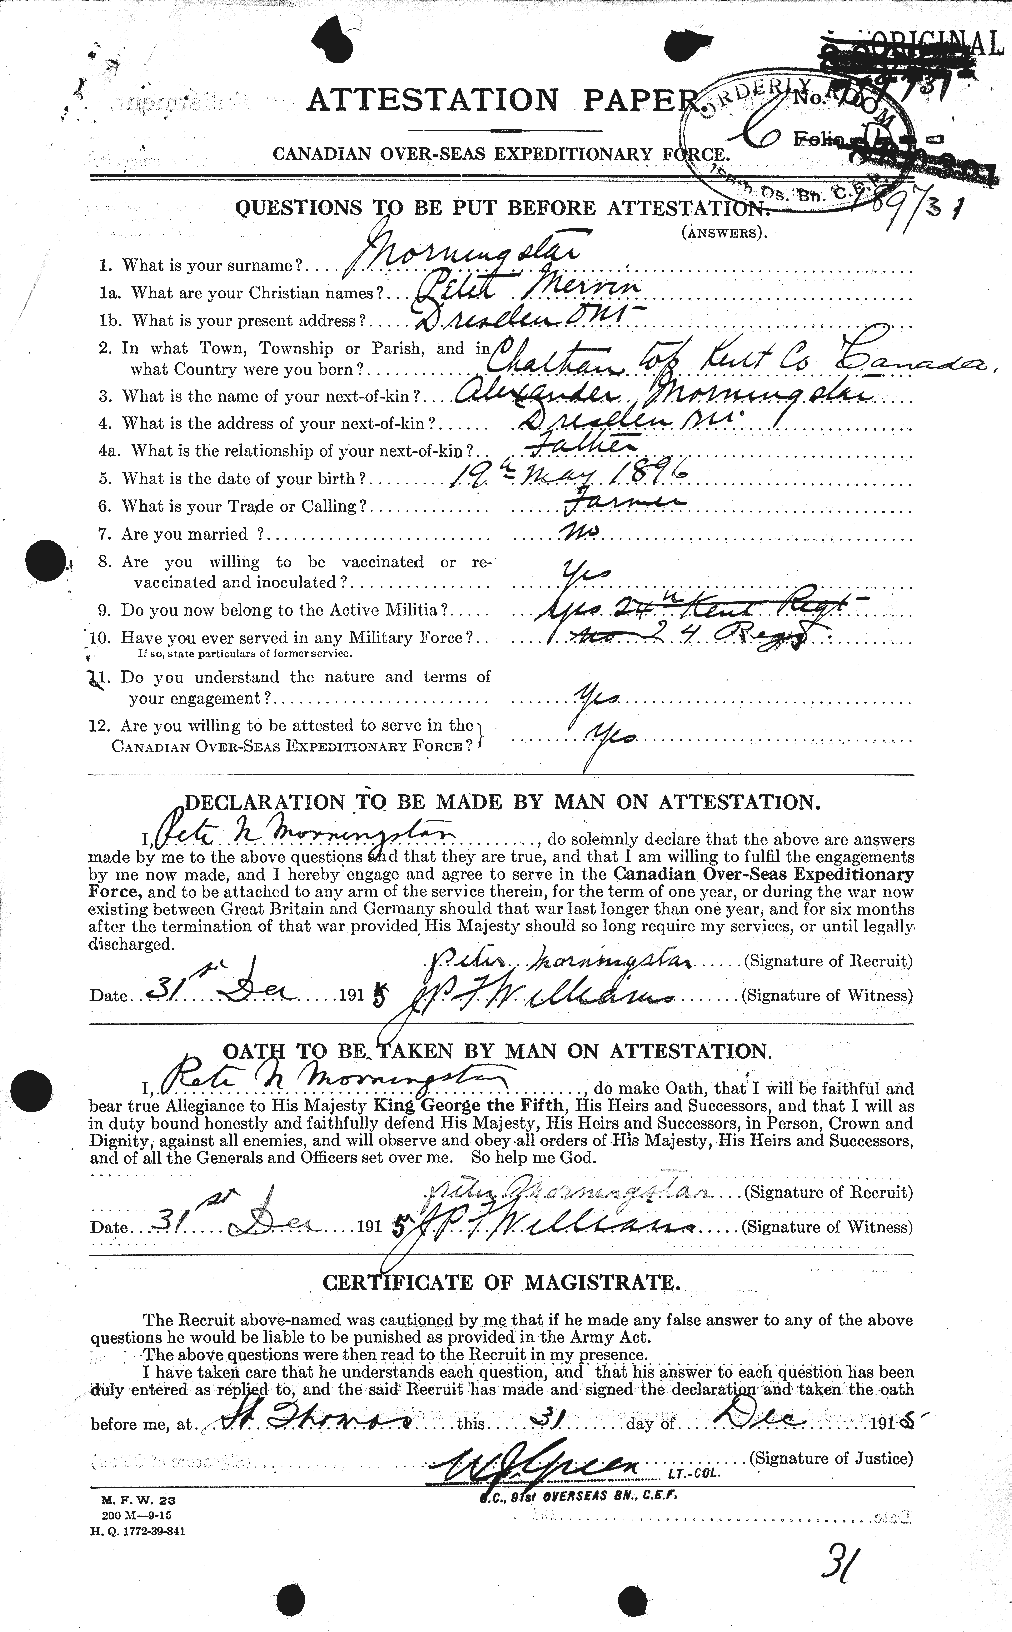 ORIGINAL
ATTESTATION PAPER.
No.
Folio
ORDERLY ROOM
Os. Bn. C.E.F.
CANADIAN OVER-SEAS EXPEDITIONARY FORCE.
189731
QUESTIONS TO BE PUT BEFORE ATTESTATION.
(ANSWERS).
1. What is your surname?.... Morningstar
1a. What are your Christian names?... Peter Mervin
1b. What is your present address?..... Dresden Ont
2. In what Town, Township or Parish, and in
what Country were you born?............ Chatham top Kent Co Canada.
3. What is the name of your next-of-kin?... Alexander Morningstar
4. What is the address of your next-of-kin?...... Dresden Ont
4a. What is the relationship of your next-of-kin?.. Father
5. What is the date of your birth?......... 19th May 1896
6. What is your Trade or Calling?............. Farmer
7. Are you married ?........................ No
8. Are you willing to be vaccinated or re-
vaccinated and inoculated?................ Yes
9. Do you now belong to the Active Militia?..... Yes 24th Kent Regt
10. Have you ever served in any Military Force?.. no 24 Regt.
If so, state particulars of former service.
11. Do you understand the nature and terms of
your engagement?........................ Yes
12. Are you willing to be attested to serve in the
CANADIAN OVER-SEAS EXPEDITIONARY FORCE? Yes
DECLARATION TO BE MADE BY MAN ON ATTESTATION.
I, Pete M Morningstar, do solemnly declare that the above are answers
made by me to the above questions and that they are true, and that I am willing to fulfil the engagements
by me now made, and I hereby engage and agree to serve in the Canadian Over-Seas Expeditionary
Force, and to be attached to any arm of the service therein, for the term of one year, or during the war now
existing between Great Britain and Germany should that war last longer than one year, and for six months
after the termination of that war provided His Majesty should so long require my services, or until legally
discharged.
Peter Morningstar (Signature of Recruit)
Date 31st Dec 1915 J P F Williams (Signature of Witness)
OATH TO BE TAKEN BY MAN ON ATTESTATION.
I, Pete M Morningstar, do make Oath, that I will be faithful and
bear true Allegiance to His Majesty King George the Fifth, His Heirs and Successors, and that I will as
in duty bound honestly and faithfully defend His Majesty, His Heirs and Successors, in Person, Crown and
Dignity, against all enemies, and will observe and obey all orders of His Majesty, His Heirs and Successors,
and of all the Generals and Officers set over me. So help me God.
Peter Morningstar (Signature of Recruit)
Date 31st Dec 1915 J P F Williams (Signature of Witness)
CERTIFICATE OF MAGISTRATE.
The Recruit above-named was cautioned by me that if he made any false answer to any of the above
questions he would be liable to be punished as provided in the Army Act.
The above questions were then read to the Recruit in my presence.
I have taken care that he understands each question, and that his answer to each question has been
duly entered as replied to, and the said Recruit has made and signed the declaration and taken the oath
before me, at St. Thomas this 31 day of Dec 1915
W J Green LT.-COL. (Signature of Justice)
O.C., 91st OVERSEAS BN., C.E.F.
M. F. W. 23
200 M—9-15
H. Q. 1772-39-841
31